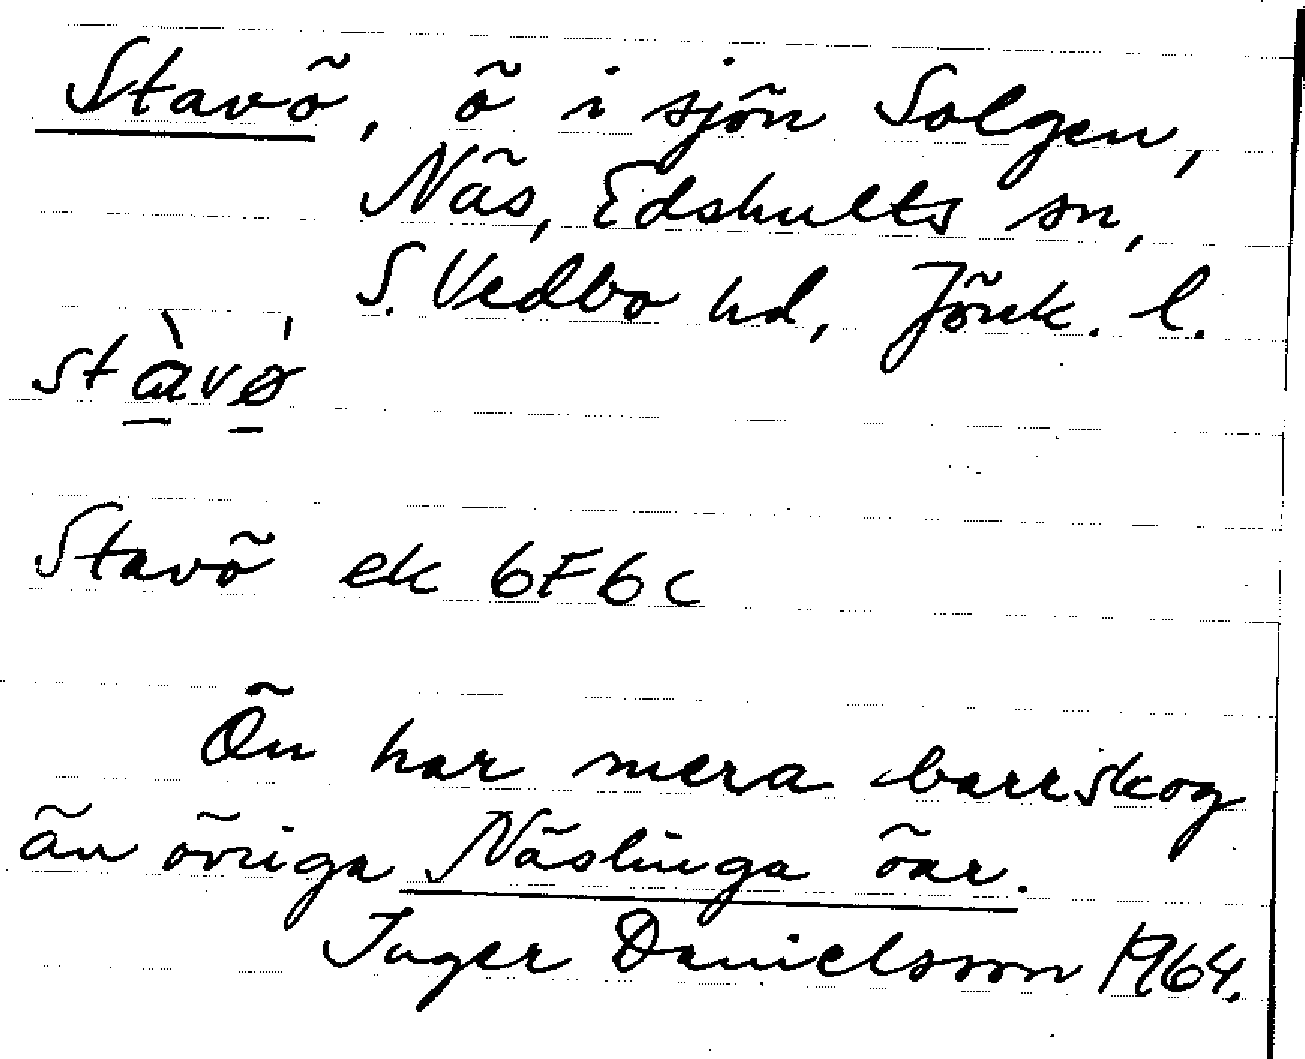 Stavö, ö i sjön Solgen,
Näs, Edshults sn,
S. Vedbo hd, Jönk. l.
stàvø
Stavö ek 6F6c
Ön har mera barrskog
än övriga Näslinga öar.
Inger Danielsson 1964.